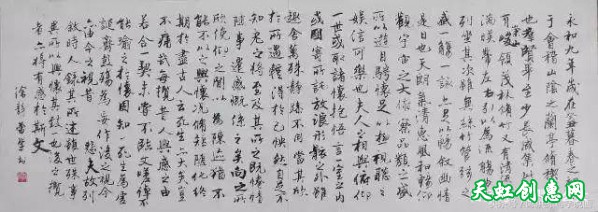 永和九年歲在癸丑暮春之初會
于會稽山陰之蘭亭脩禊事
也群賢畢至少長咸集此地
有崇山峻領茂林脩竹又有清流激
湍暎帶左右引以為流觴曲水
列坐其次雖無絲竹管弦之
盛一觴一詠亦足以暢敘幽情
是日也天朗氣清惠風和暢仰
觀宇宙之大俯察品類之盛
所以遊目騁懷足以極視聽之
娛信可樂也夫人之相與俯仰
一世或取諸懷抱悟言一室之內
或因寄所託放浪形骸之外雖
趣舍萬殊靜躁不同當其欣
於所遇暫得於己快然自足不
知老之將至及其所之既惓情
隨事遷感慨係之矣向之所
欣俛仰之間以為陳迹猶不
能不以之興懷況脩短隨化終
期於盡古人云死生亦大矣豈
不痛哉每攬昔人興感之由
若合一契未嘗不臨文嗟悼不
能喻之於懷固知一死生為虛
誕齊彭殤為妄作後之視今
亦由今之視昔悲夫故列
敘時人錄其所述雖世殊事
異所以興懷其致一也後之攬
者亦將有感於斯文
天虹创惠网